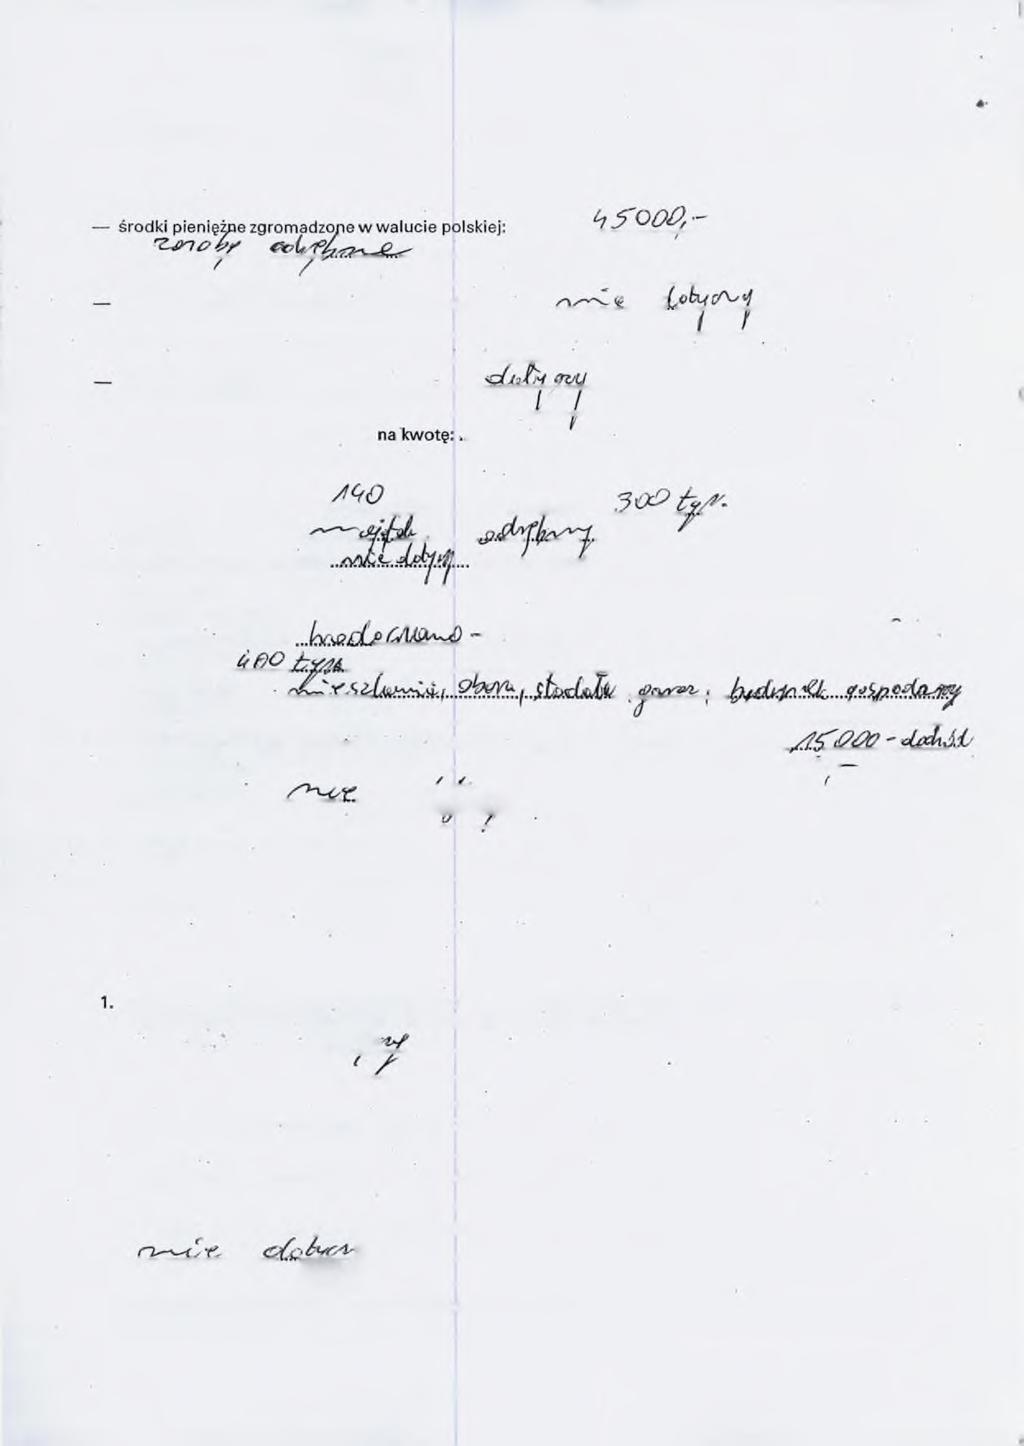 — środki pieniężne zgromadzone w walucie polskiej: 45000,-
zasoby odrębne
— nie dotyczy
— dotyczy
na kwotę: .
140 300 tyś.
majątek odrębny
nie dotyczy
400 tyś.
mieszkanie, obora, stodoła, garaż, budynek gospodarczy
15000 - dochód
nie
1.
nie